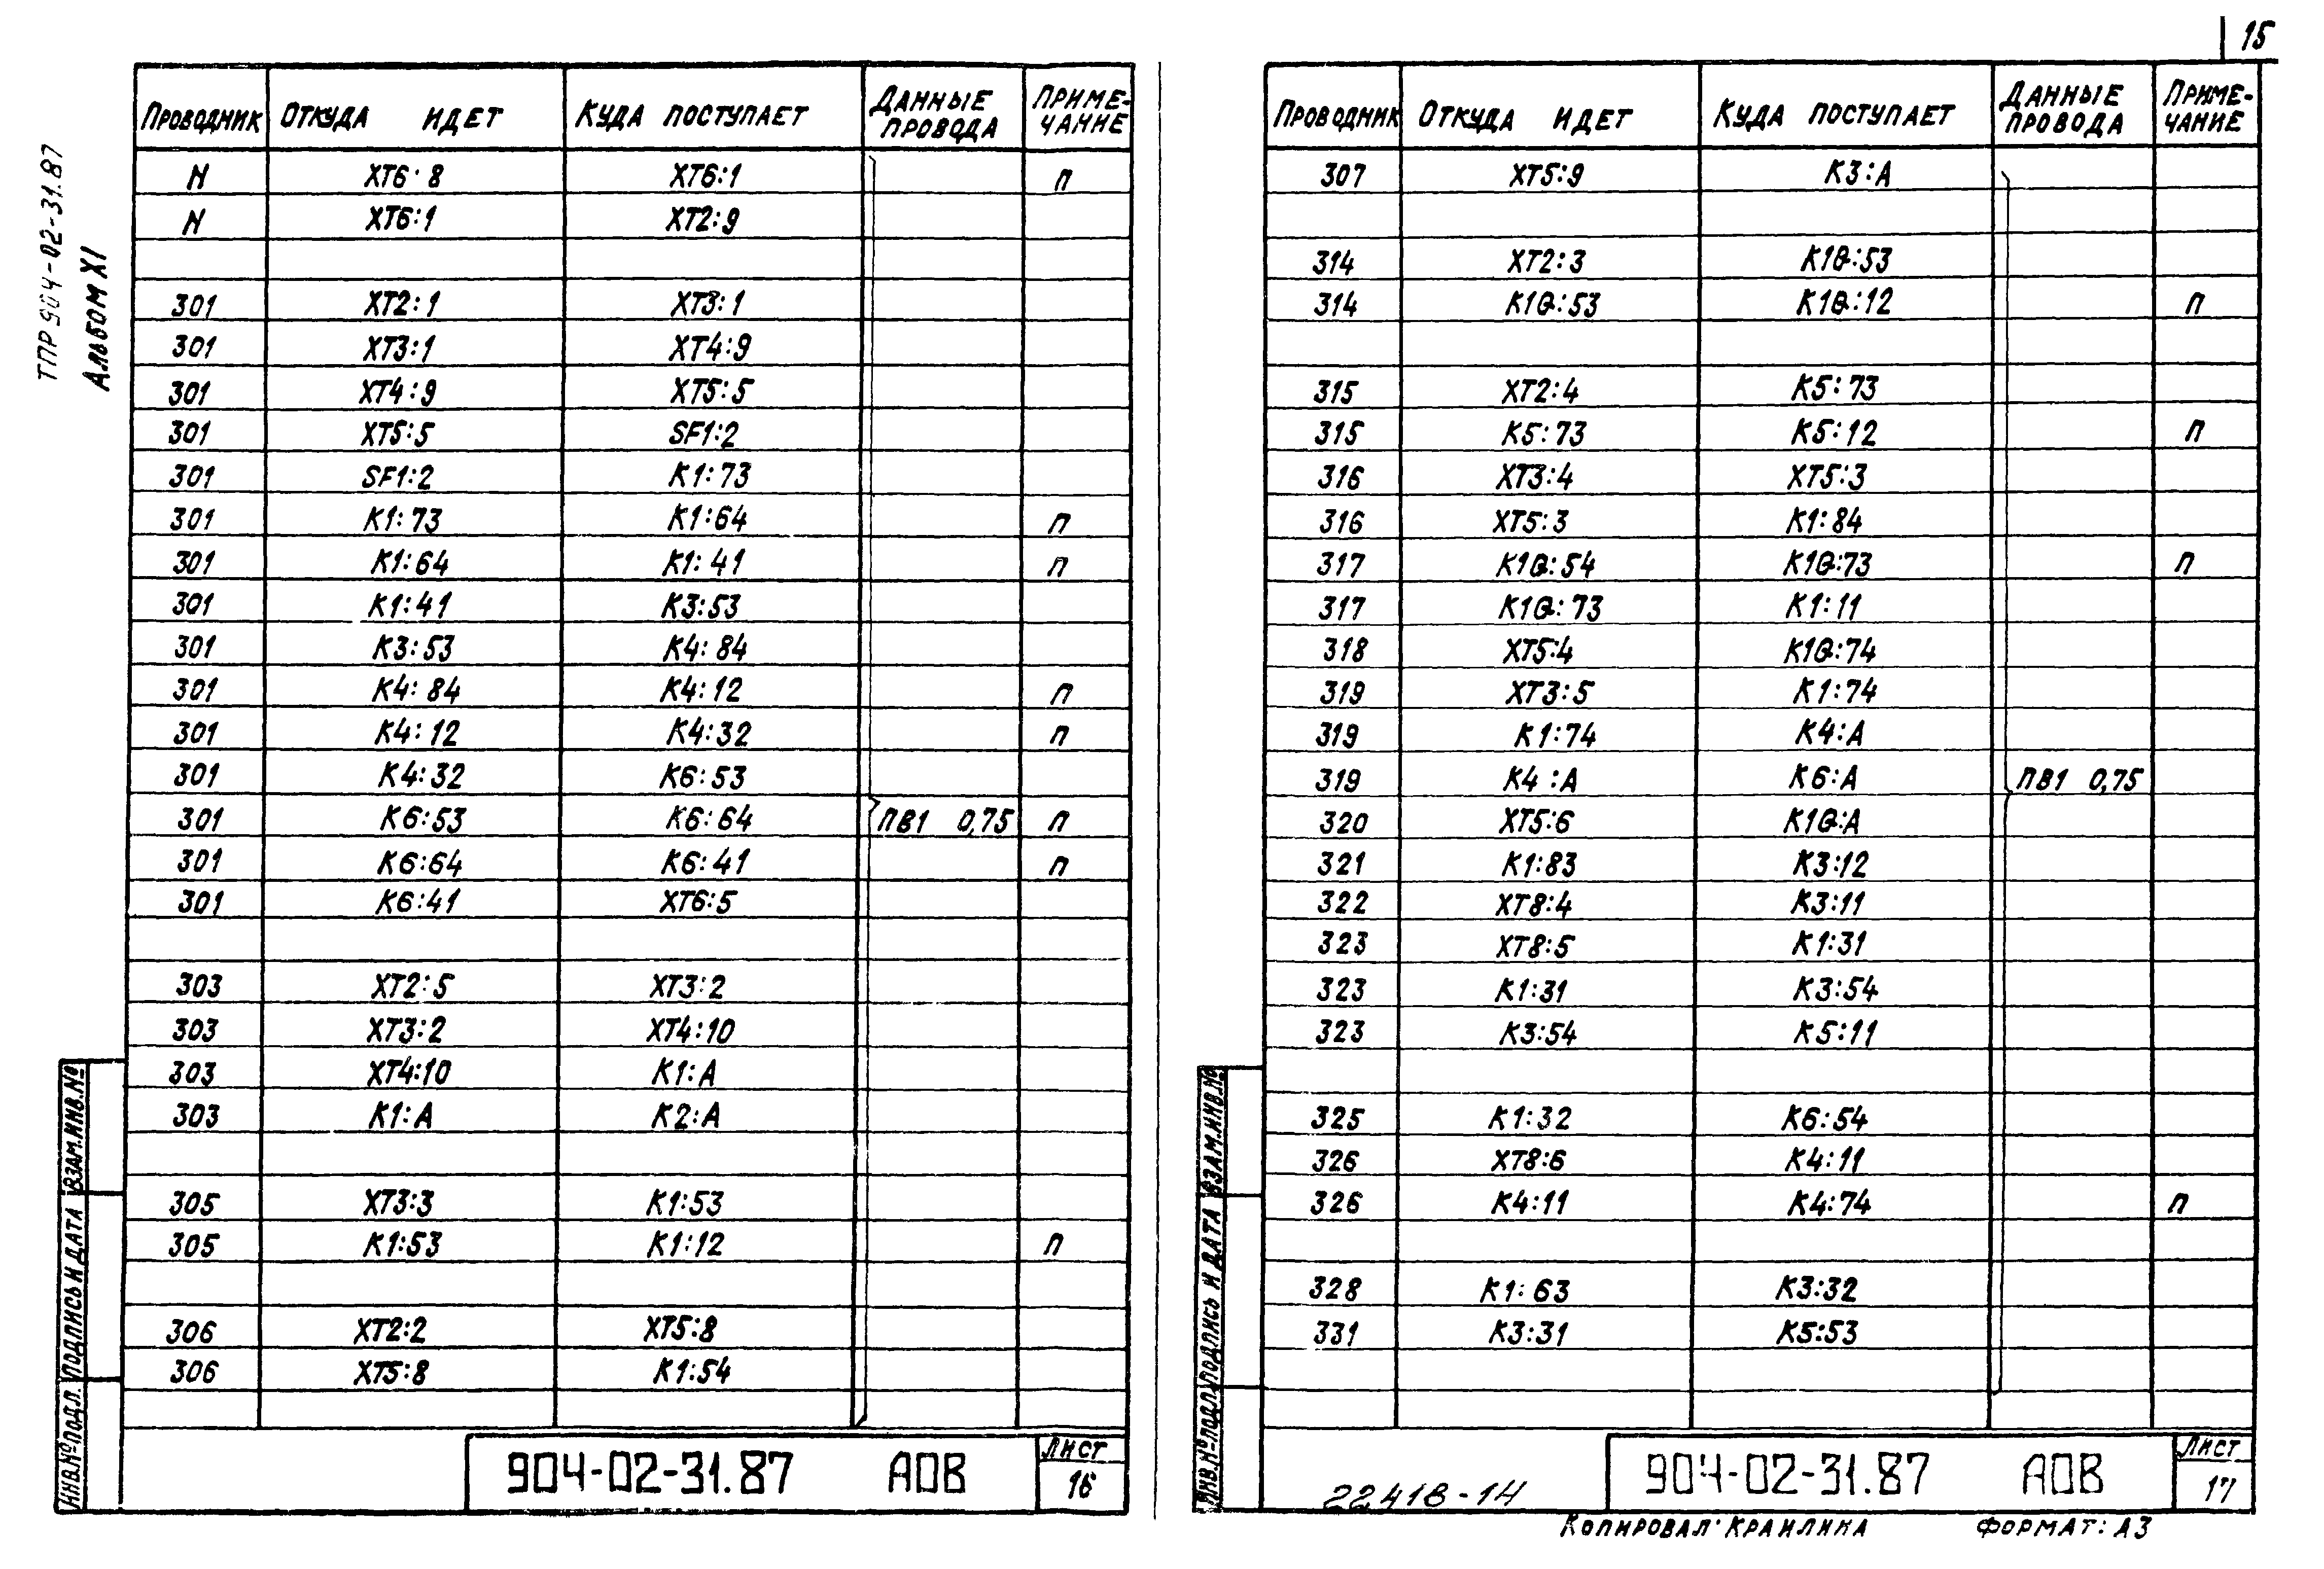 15
ТПР 904-02-31.87
АЛЬБОМ XI
ПРОВОДНИК ОТКУДА ИДЕТ КУДА ПОСТУПАЕТ ДАННЫЕ ПРОВОДА ПРИМЕ-ЧАНИЕ
N ХТ6:8 ХТ6:1 П
N ХТ6:1 ХТ2:9
301 ХТ2:1 ХТ3:1
301 ХТ3:1 ХТ4:9
301 ХТ4:9 ХТ5:5
301 ХТ5:5 SF1:2
301 SF1:2 К1:73
301 К1:73 К1:64 П
301 К1:64 К1:41 П
301 К1:41 К3:53
301 К3:53 К4:84
301 К4:84 К4:12 П
301 К4:12 К4:32 П
301 К4:32 К6:53
301 К6:53 К6:64 ПВ1 0,75 П
301 К6:64 К6:41 П
301 К6:41 ХТ6:5
303 ХТ2:5 ХТ3:2
303 ХТ3:2 ХТ4:10
303 ХТ4:10 К1:А
303 К1:А К2:А
305 ХТ3:3 К1:53
305 К1:53 К1:12 П
306 ХТ2:2 ХТ5:8
306 ХТ5:8 К1:54
ИНВ.№ПОДЛ. ПОДПИСЬ И ДАТА ВЗАМ.ИНВ.№
904-02-31.87 АОВ
ЛИСТ
16
ПРОВОДНИК ОТКУДА ИДЕТ КУДА ПОСТУПАЕТ ДАННЫЕ ПРОВОДА ПРИМЕ-ЧАНИЕ
307 ХТ5:9 К3:А
314 ХТ2:3 К1Q:53
314 К1Q:53 К1Q:12 П
315 ХТ2:4 К5:73
315 К5:73 К5:12 П
316 ХТ3:4 ХТ5:3
316 ХТ5:3 К1:84
317 К1Q:54 К1Q:73 П
317 К1Q:73 К1:11
318 ХТ5:4 К1Q:74
319 ХТ3:5 К1:74
319 К1:74 К4:А
319 К4:А К6:А ПВ1 0,75
320 ХТ5:6 К1Q:А
321 К1:83 К3:12
322 ХТ8:4 К3:11
323 ХТ8:5 К1:31
323 К1:31 К3:54
323 К3:54 К5:11
325 К1:32 К6:54
326 ХТ8:6 К4:11
326 К4:11 К4:74 П
328 К1:63 К3:32
331 К3:31 К5:53
ИНВ.№ПОДЛ. ПОДПИСЬ И ДАТА ВЗАМ.ИНВ.№
22418-14
904-02-31.87 АОВ
ЛИСТ
17
КОПИРОВАЛ: КРАИЛИНА ФОРМАТ: А3